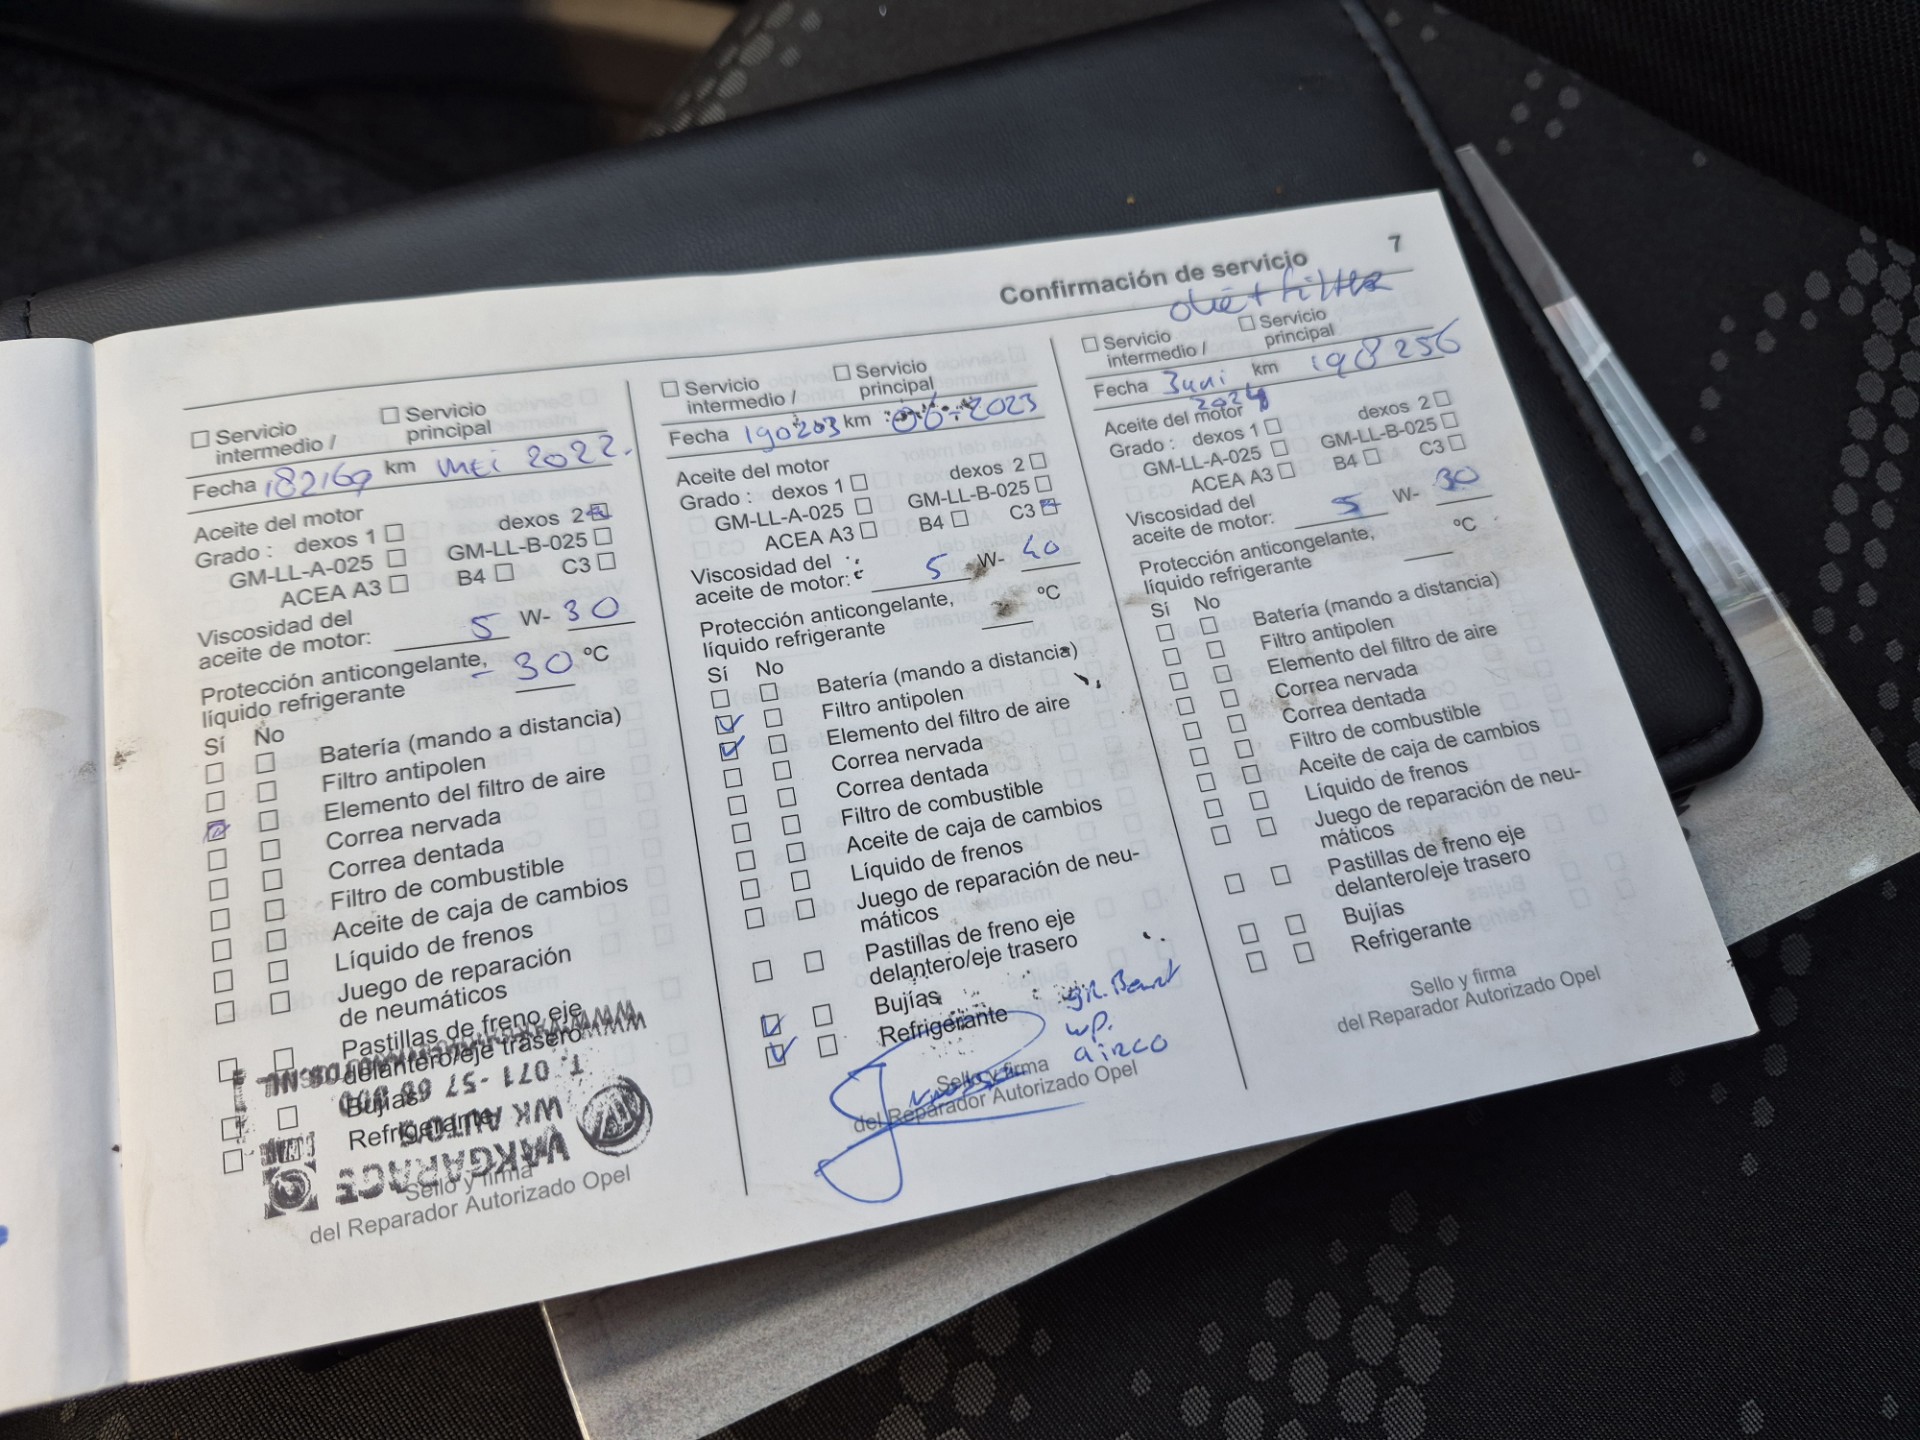 Confirmación de servicio 7
Servicio intermedio /
Servicio principal
Fecha 182169 km mei 2022.
Aceite del motor
Grado : dexos 1 dexos 2
GM-LL-A-025 GM-LL-B-025
ACEA A3 B4 C3
Viscosidad del
aceite de motor: 5 W- 30
Protección anticongelante,
líquido refrigerante - 30 ºC
Sí No
Batería (mando a distancia)
Filtro antipolen
Elemento del filtro de aire
Correa nervada
Correa dentada
Filtro de combustible
Aceite de caja de cambios
Líquido de frenos
Juego de reparación
de neumáticos
Pastillas de freno eje
delantero/eje trasero
Bujías
Refrigerante
T. 071 - 57
WK AUTO'S
VAKGARAGE
Sello y firma
del Reparador Autorizado Opel
Servicio intermedio /
Servicio principal
Fecha 190203 km 06-2023
Aceite del motor
Grado : dexos 1 dexos 2
GM-LL-A-025 GM-LL-B-025
ACEA A3 B4 C3
Viscosidad del
aceite de motor: 5 W- 40
Protección anticongelante,
líquido refrigerante ºC
Sí No
Batería (mando a distancia)
Filtro antipolen
Elemento del filtro de aire
Correa nervada
Correa dentada
Filtro de combustible
Aceite de caja de cambios
Líquido de frenos
Juego de reparación de neu-
máticos
Pastillas de freno eje
delantero/eje trasero
Bujías
Refrigerante
wp.
airco
Sello y firma
del Reparador Autorizado Opel
olie + filter
Servicio intermedio /
Servicio principal
Fecha Juni km 198256
2024
Aceite del motor
Grado : dexos 1 dexos 2
GM-LL-A-025 GM-LL-B-025
ACEA A3 B4 C3
Viscosidad del
aceite de motor: 5 W- 30
Protección anticongelante,
líquido refrigerante ºC
Sí No
Batería (mando a distancia)
Filtro antipolen
Elemento del filtro de aire
Correa nervada
Correa dentada
Filtro de combustible
Aceite de caja de cambios
Líquido de frenos
Juego de reparación de neu-
máticos
Pastillas de freno eje
delantero/eje trasero
Bujías
Refrigerante
Sello y firma
del Reparador Autorizado Opel